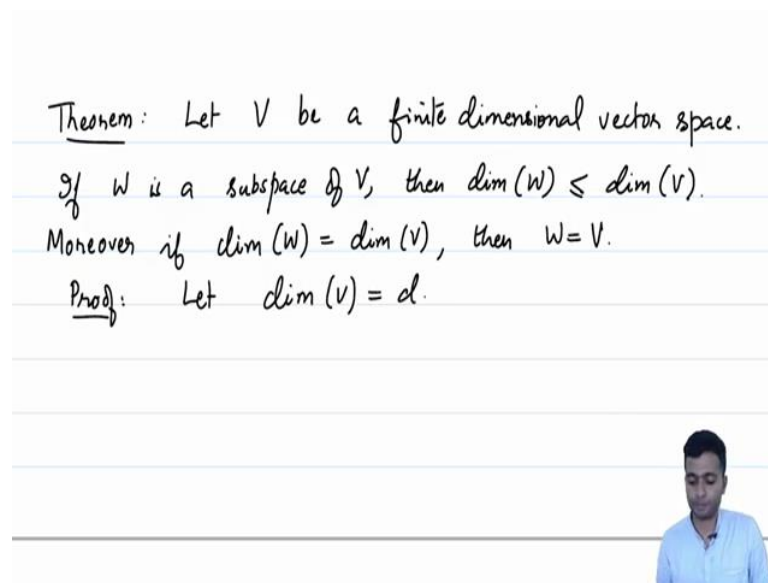 Theorem: Let V be a finite dimensional vector space.
If W is a subspace of V, then dim (W) ≤ dim (V).
Moreover if dim (W) = dim (V), then W = V.
Proof: Let dim (V) = d.